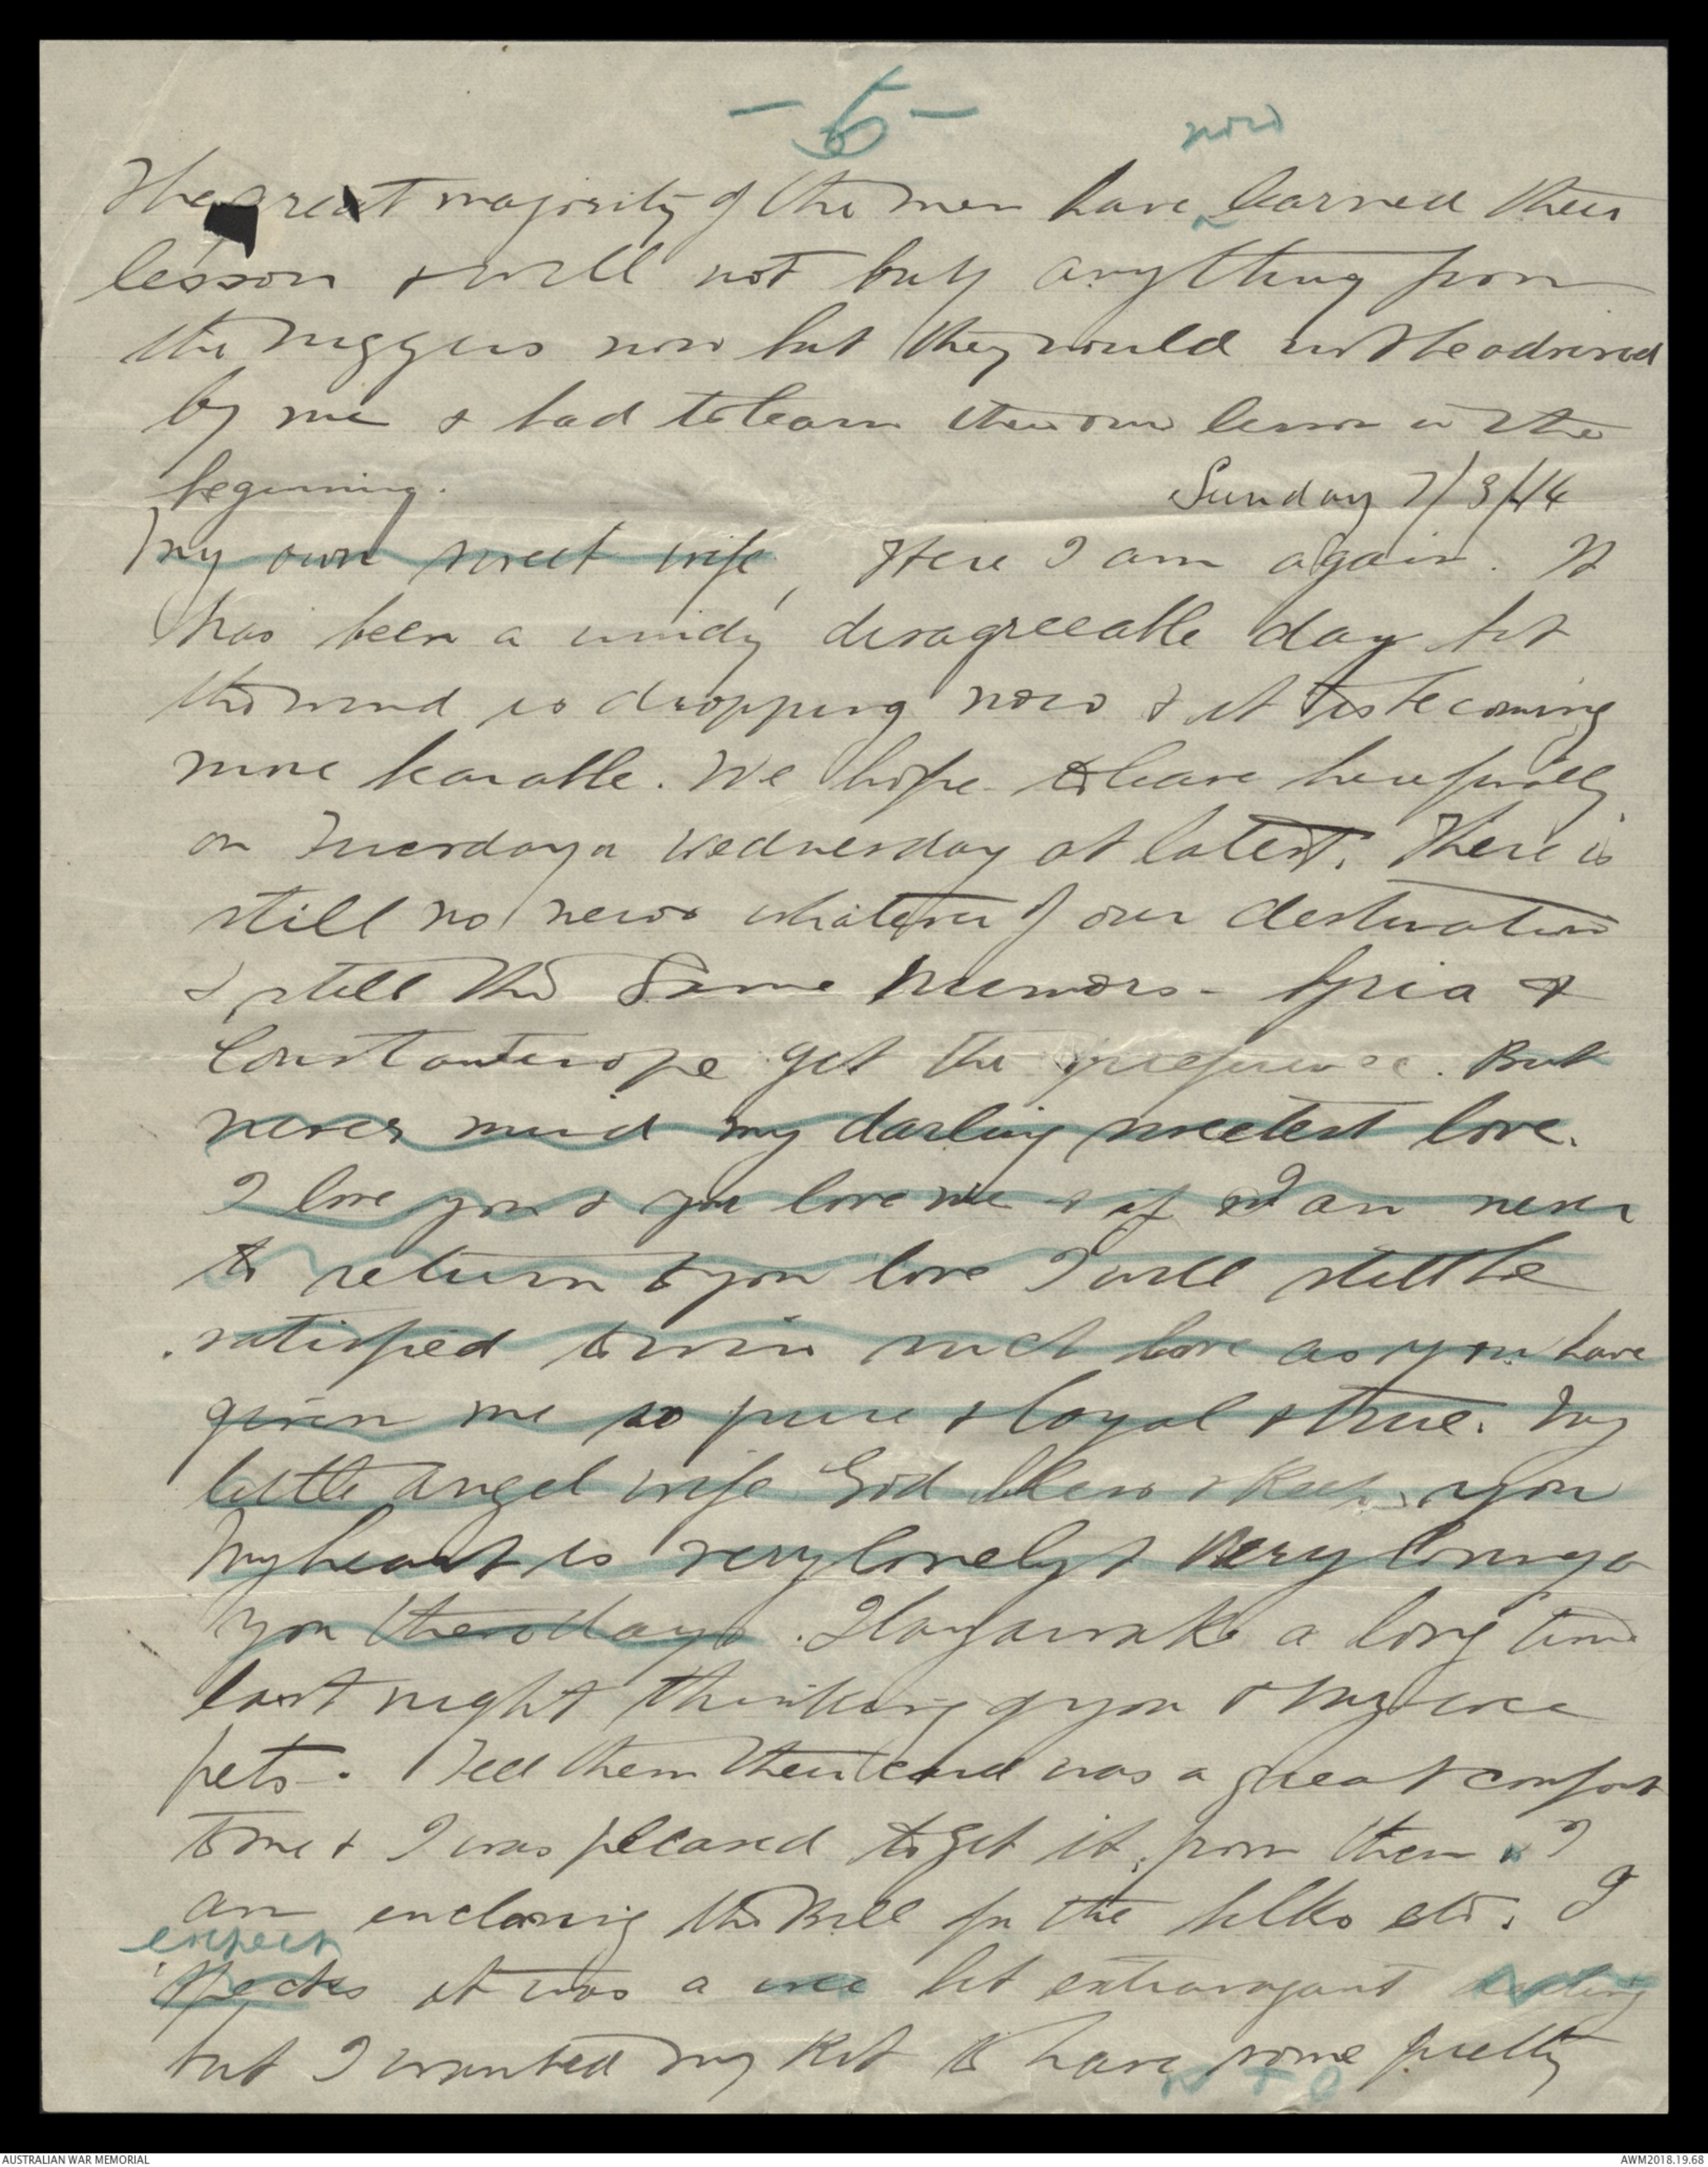 - 5 -
now
The great majority of the men have ^ learned their
lesson & will not buy anything from
the niggers now but they would not be advised
by me & had to learn their own lesson in the
beginning.
Sunday 7/3/14
My own sweet wife, Here I am again. It
has been a windy disagreeable day but
the wind is dropping now & it is becoming
more bearable. We hope to leave here finally
on Tuesday or Wednesday at latest. There is
still no news whatever of our destination
& still the same rumors - Syria &
Constantinople get the preference. But
never mind my darling sweetest love.
I love you & you love me & if I am never
to return to you love I will still be
satisfied to win such love as you have
given me so pure & loyal & true. My
little angel wife God bless & keep you
My heart is very lonely & very longing for
you these days. I lay awake a long time
last night thinking of you & my wee
pets. Tell them their card was a great comfort
to me & I was pleased to get it from them. I
am enclosing the Bill for the silks etc. I
expect
'spects it was a wee bit extravagant darling
but I wanted my Kit to have some pretty
P T O
AUSTRALIAN WAR MEMORIAL
AWM2018.19.68